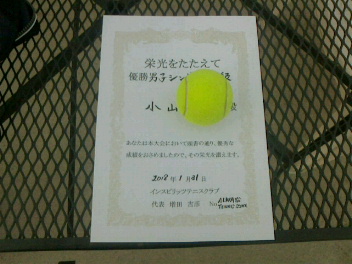 栄光をたたえて
優勝 男子シン 級
小山 殿
あなたは本大会において頭書の通り、優秀な
成績をおさめましたので、その栄光を讃えます。
2018年1月21日
インスピリッツテニスクラブ
代表 増田 吉彦